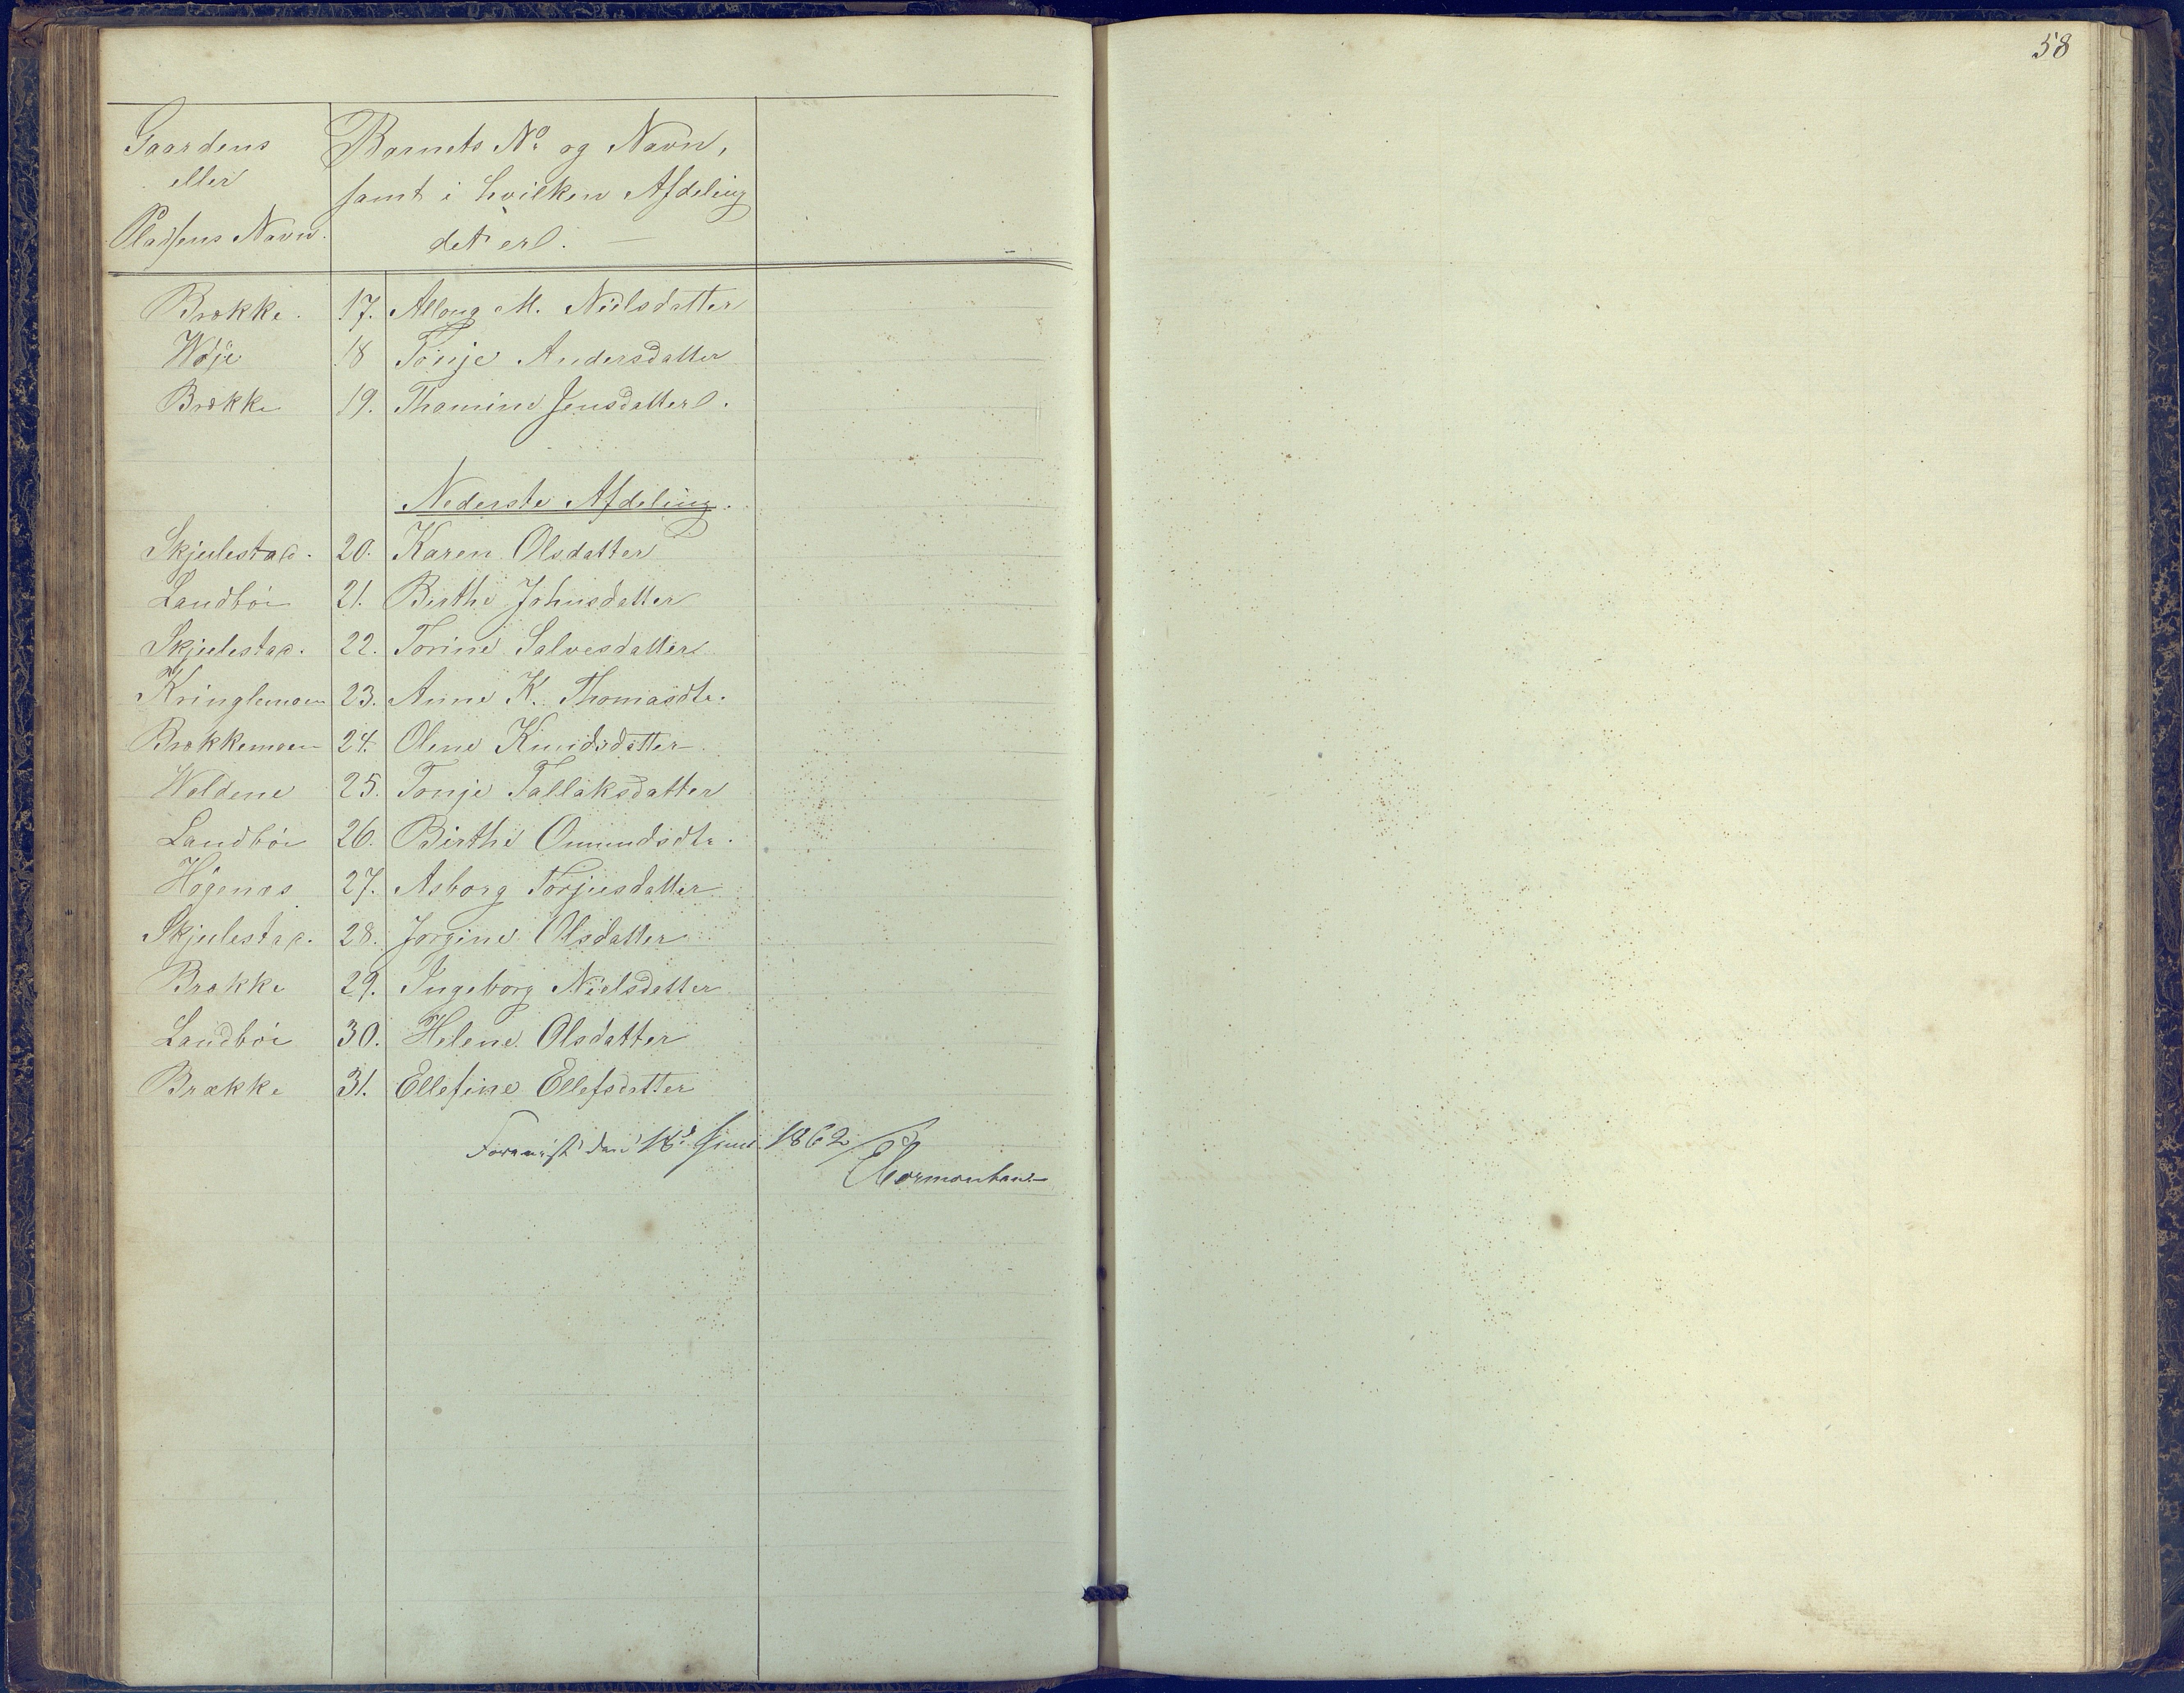 58
Gaardens eller Pladsens Navn.
Barnets No og Navn, samt i hvilken Afdeling det er.
Brække. 17. Alloug M. Nielsdatter
Wøje 18 Tønje Andersdatter
Brække 19. Thomine Jensdatter.
Nederste Afdeling.
Skjulestad. 20. Karen Olsdatter
Landbøe 21. Birthe Johnsdatter
Skjulestad. 22. Torine Salvesdatter
Kringlemoen 23. Anne K. Thomasdtr.
Brækkemoen 24. Olene Knudsdatter
Woldene 25. Tonje Tallaksdatter
Landbøe 26. Birthe Omundsdtr.
Høgenæs 27. Asborg Torjusdatter
Skjulestad. 28. Jørgine Olsdatter
Brække 29. Ingeborg Nielsdatter
Landbøe 30. Helene Olsdatter
Brække 31. Ellefine Ellefsdatter
den 18d Juni 1862